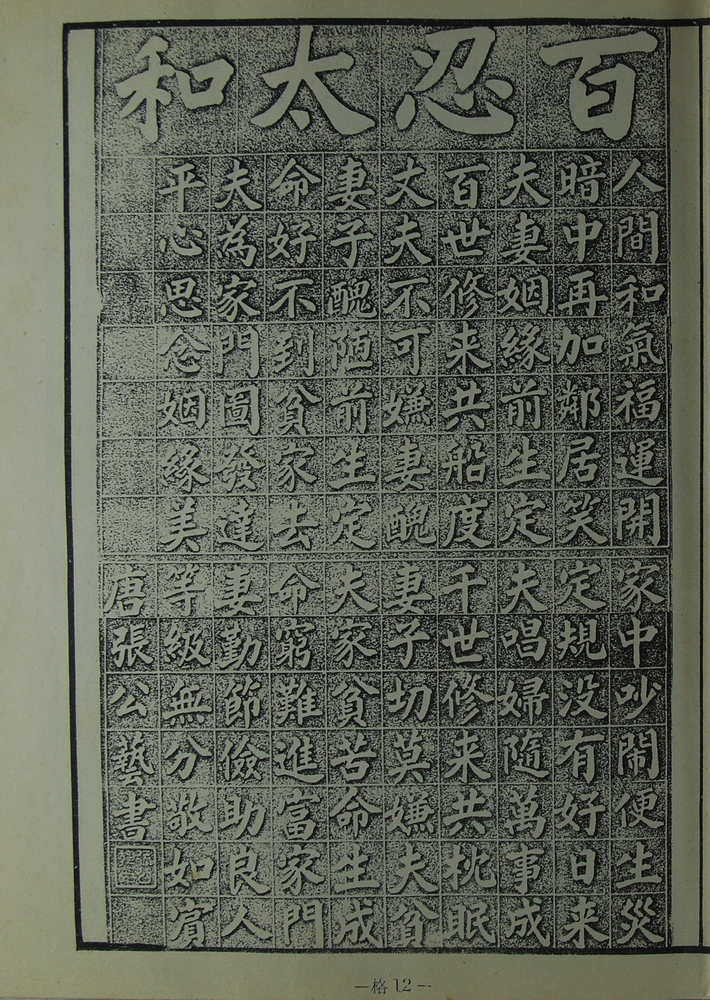 百忍太和
人間和氣福運開
家中吵鬧便生災
暗中再加鄰居笑
定規没有好日来
夫妻姻緣前生定
夫唱婦隨萬事成
百世修来共船度
千世修来共枕眠
丈夫不可嫌妻醜
妻子切莫嫌夫貧
妻子醜陋前生定
夫家貧苦命生成
命好不到貧家去
命窮難進富家門
夫為家門圖發達
妻勤節儉助良人
平心思念姻緣美
等級無分敬如賓
唐張公藝書
—格12—